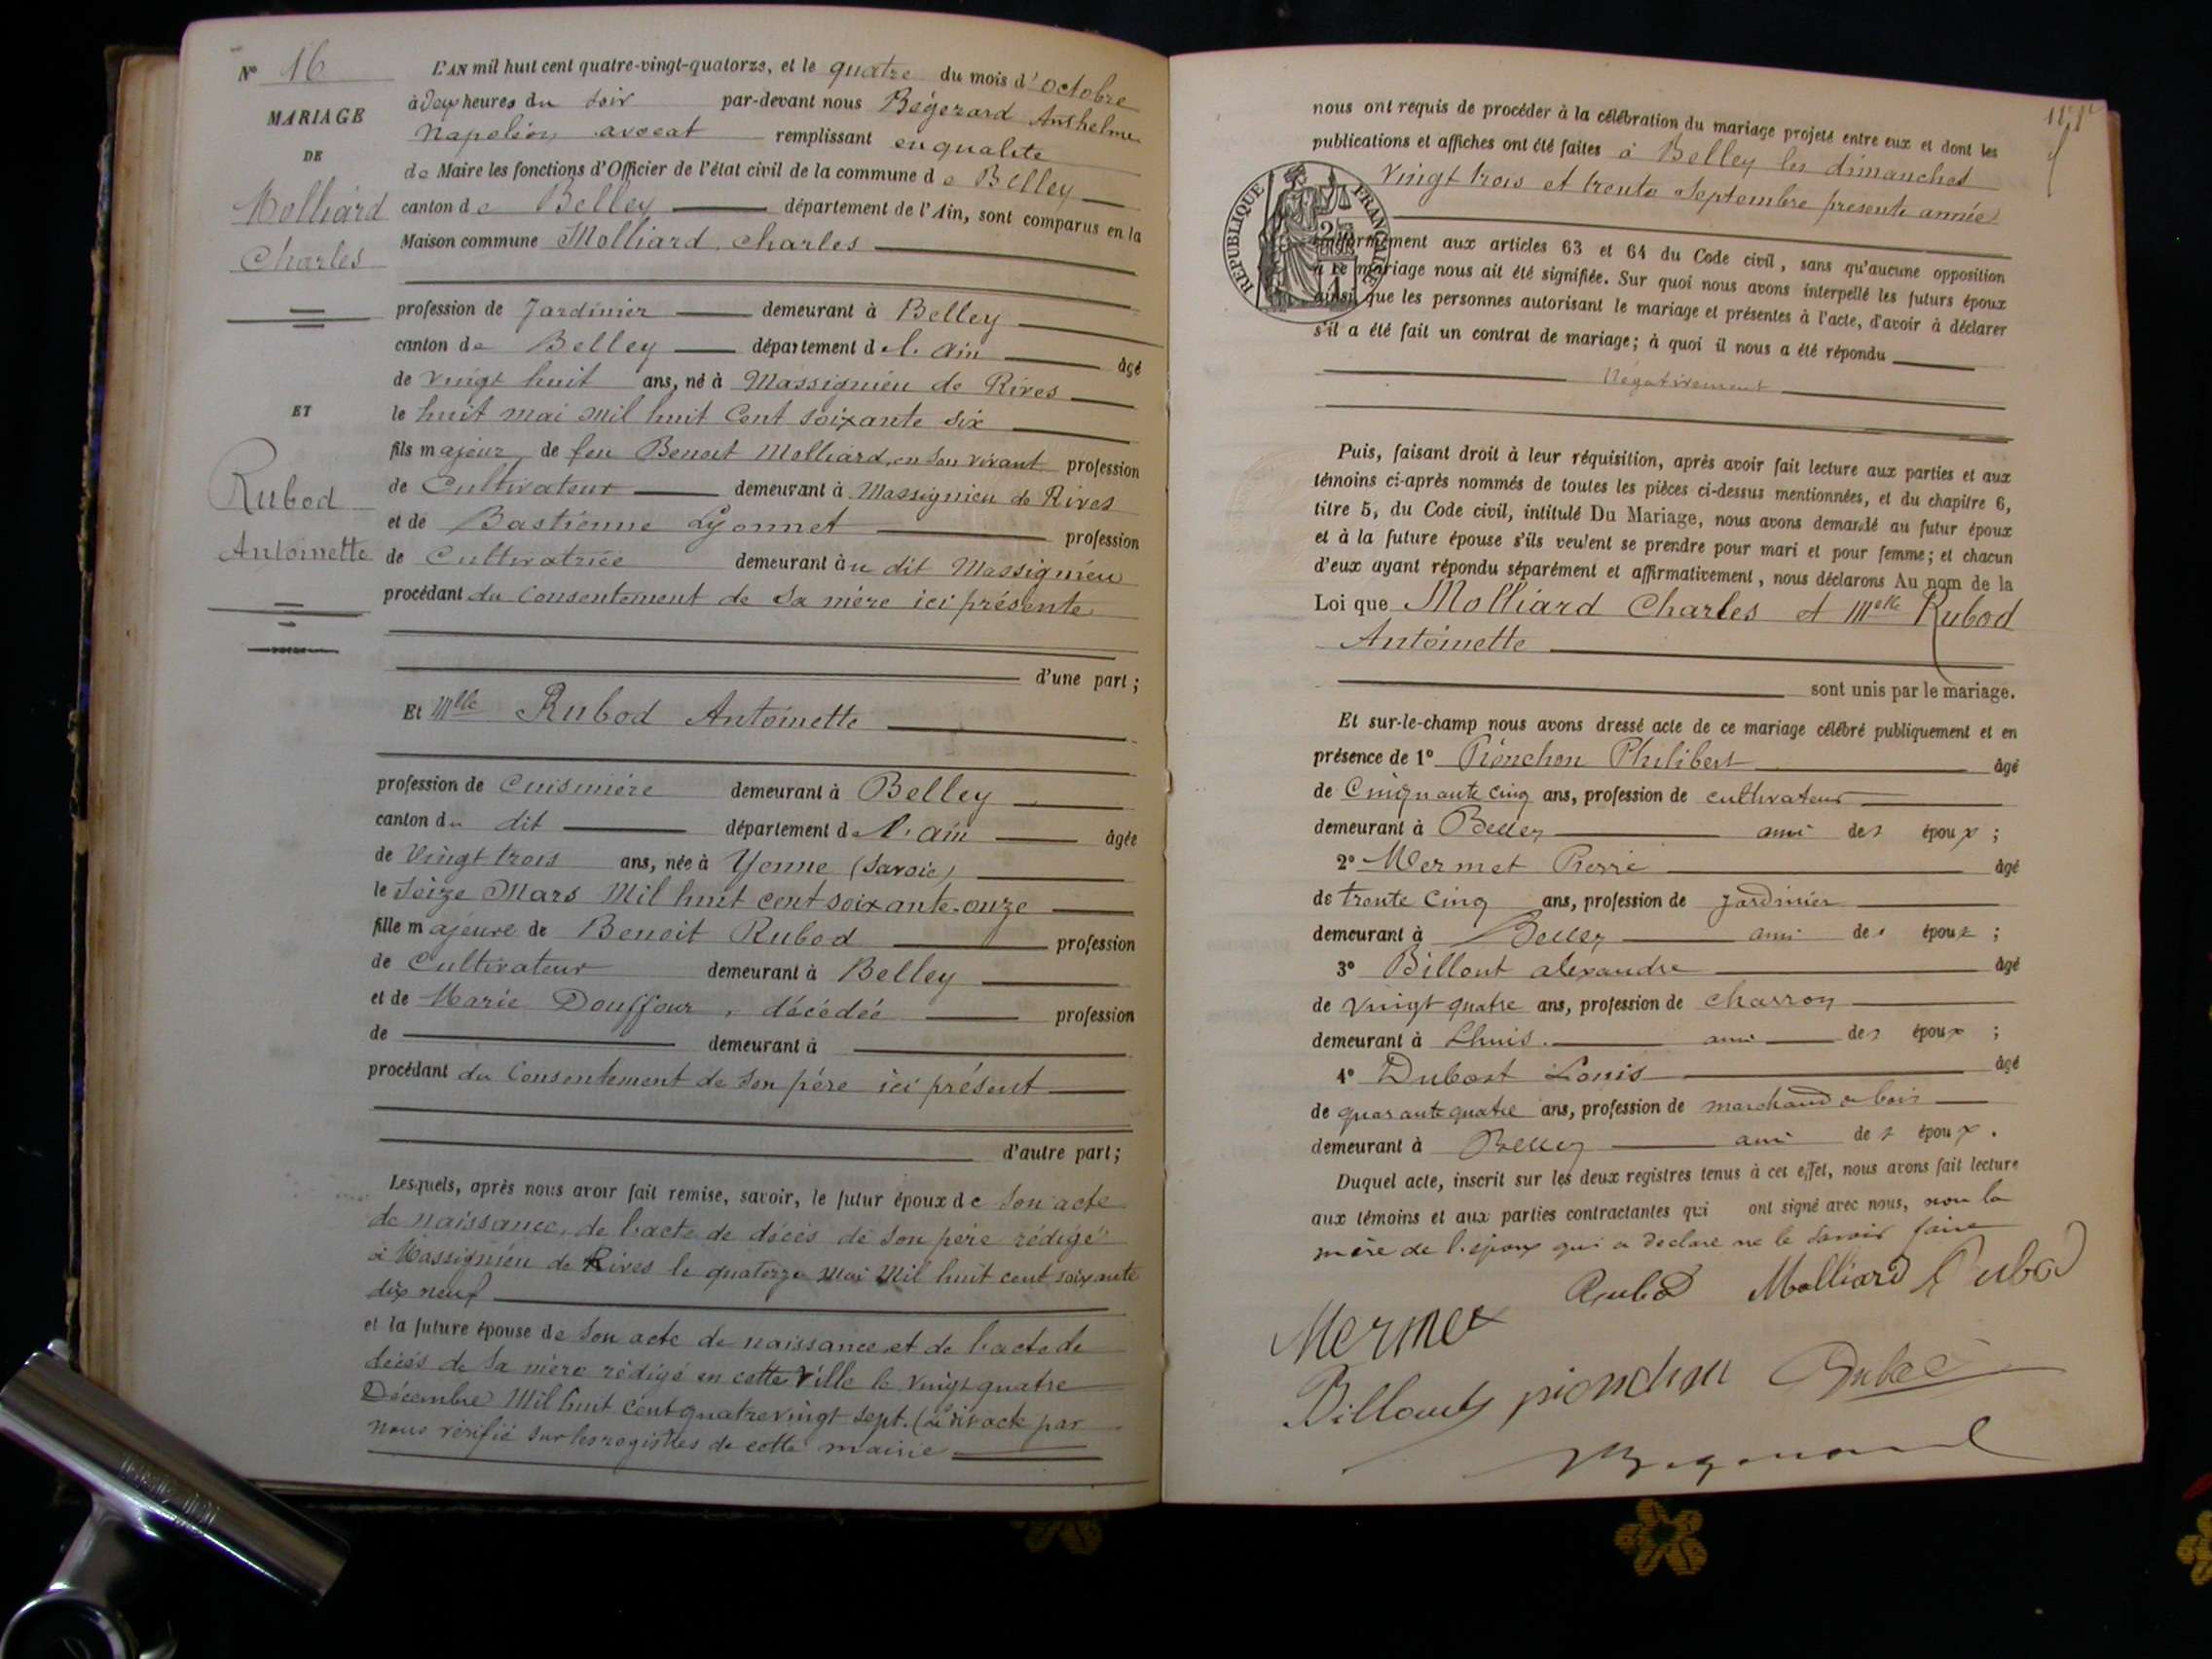 N° 16
MARIAGE
DE
Molliard
Charles
ET
Rubod
Antoinette
L'AN mil huit cent quatre-vingt-quatorze, et le quatre du mois d'octobre
à deux heures du soir par-devant nous Bégerard Anthelme
Napoléon avocat remplissant en qualité
de Maire les fonctions d'Officier de l'état civil de la commune de Belley
canton de Belley département de l'Ain, sont comparus en la
Maison commune Molliard Charles
profession de Jardinier demeurant à Belley
canton de Belley département de l'Ain âgé
de vingt huit ans, né à Massignieu de Rives
le huit mai mil huit Cent soixante six
fils majeur de feu Benoit Molliard, en son vivant profession
de Cultivateur demeurant à Massignieu de Rives
et de Bastienne Lyonnet profession
de Cultivatrice demeurant au dit Massignieu
procédant du Consentement de sa mère ici présente
d'une part;
Et Mlle Rubod Antoinette
profession de Cuisinière demeurant à Belley
canton du dit département de l'Ain âgée
de Vingt trois ans, née à Yenne (Savoie)
le Seize Mars Mil huit cent soixante-onze
fille majeure de Benoit Rubod profession
de Cultivateur demeurant à Belley
et de Marie Douffour, décédée profession
de demeurant à
procédant du Consentement de son père ici présent
d'autre part;
Lesquels, après nous avoir fait remise, savoir, le futur époux de son acte
de naissance, de l'acte de décès de son père rédigé
à Massignieu de Rives le quatorze Mai Mil huit cent soixante
dix neuf
et la future épouse de son acte de naissance et de l'acte de
décès de sa mère rédigé en cette Ville le vingt quatre
Décembre Mil huit cent quatre vingt sept. (Le dit acte par
nous vérifié sur les registres de cette mairie
nous ont requis de procéder à la célébration du mariage projeté entre eux et dont les
publications et affiches ont été faites à Belley les dimanches
vingt trois et trente Septembre présente année
RÉPUBLIQUE FRANÇAISE
conformément aux articles 63 et 64 du Code civil, sans qu'aucune opposition
à ce mariage nous ait été signifiée. Sur quoi nous avons interpellé les futurs époux
ainsi que les personnes autorisant le mariage et présentes à l'acte, d'avoir à déclarer
s'il a été fait un contrat de mariage; à quoi il nous a été répondu
Négativement
Puis, faisant droit à leur réquisition, après avoir fait lecture aux parties et aux
témoins ci-après nommés de toutes les pièces ci-dessus mentionnées, et du chapitre 6,
titre 5, du Code civil, intitulé Du Mariage, nous avons demandé au futur époux
et à la future épouse s'ils veulent se prendre pour mari et pour femme; et chacun
d'eux ayant répondu séparément et affirmativement, nous déclarons Au nom de la
Loi que Molliard Charles et Melle Rubod
Antoinette
sont unis par le mariage.
Et sur-le-champ nous avons dressé acte de ce mariage célébré publiquement et en
présence de 1° Pionchon Philibert âgé
de Cinquante cinq ans, profession de cultivateur
demeurant à Belley ami des époux;
2° Mermet Pierre âgé
de trente Cinq ans, profession de Jardinier
demeurant à Belley ami des époux;
3° Billout alexandre âgé
de Vingt quatre ans, profession de Charron
demeurant à Lhuis. ami des époux;
4° Dubost Louis âgé
de quarante quatre ans, profession de marchand de bois
demeurant à Belley ami des époux.
Duquel acte, inscrit sur les deux registres tenus à cet effet, nous avons fait lecture
aux témoins et aux parties contractantes qui ont signé avec nous, non la
mère de l'époux qui a déclaré ne le savoir faire
Rubod Molliard Rubod
Mermet
Billout pionchon